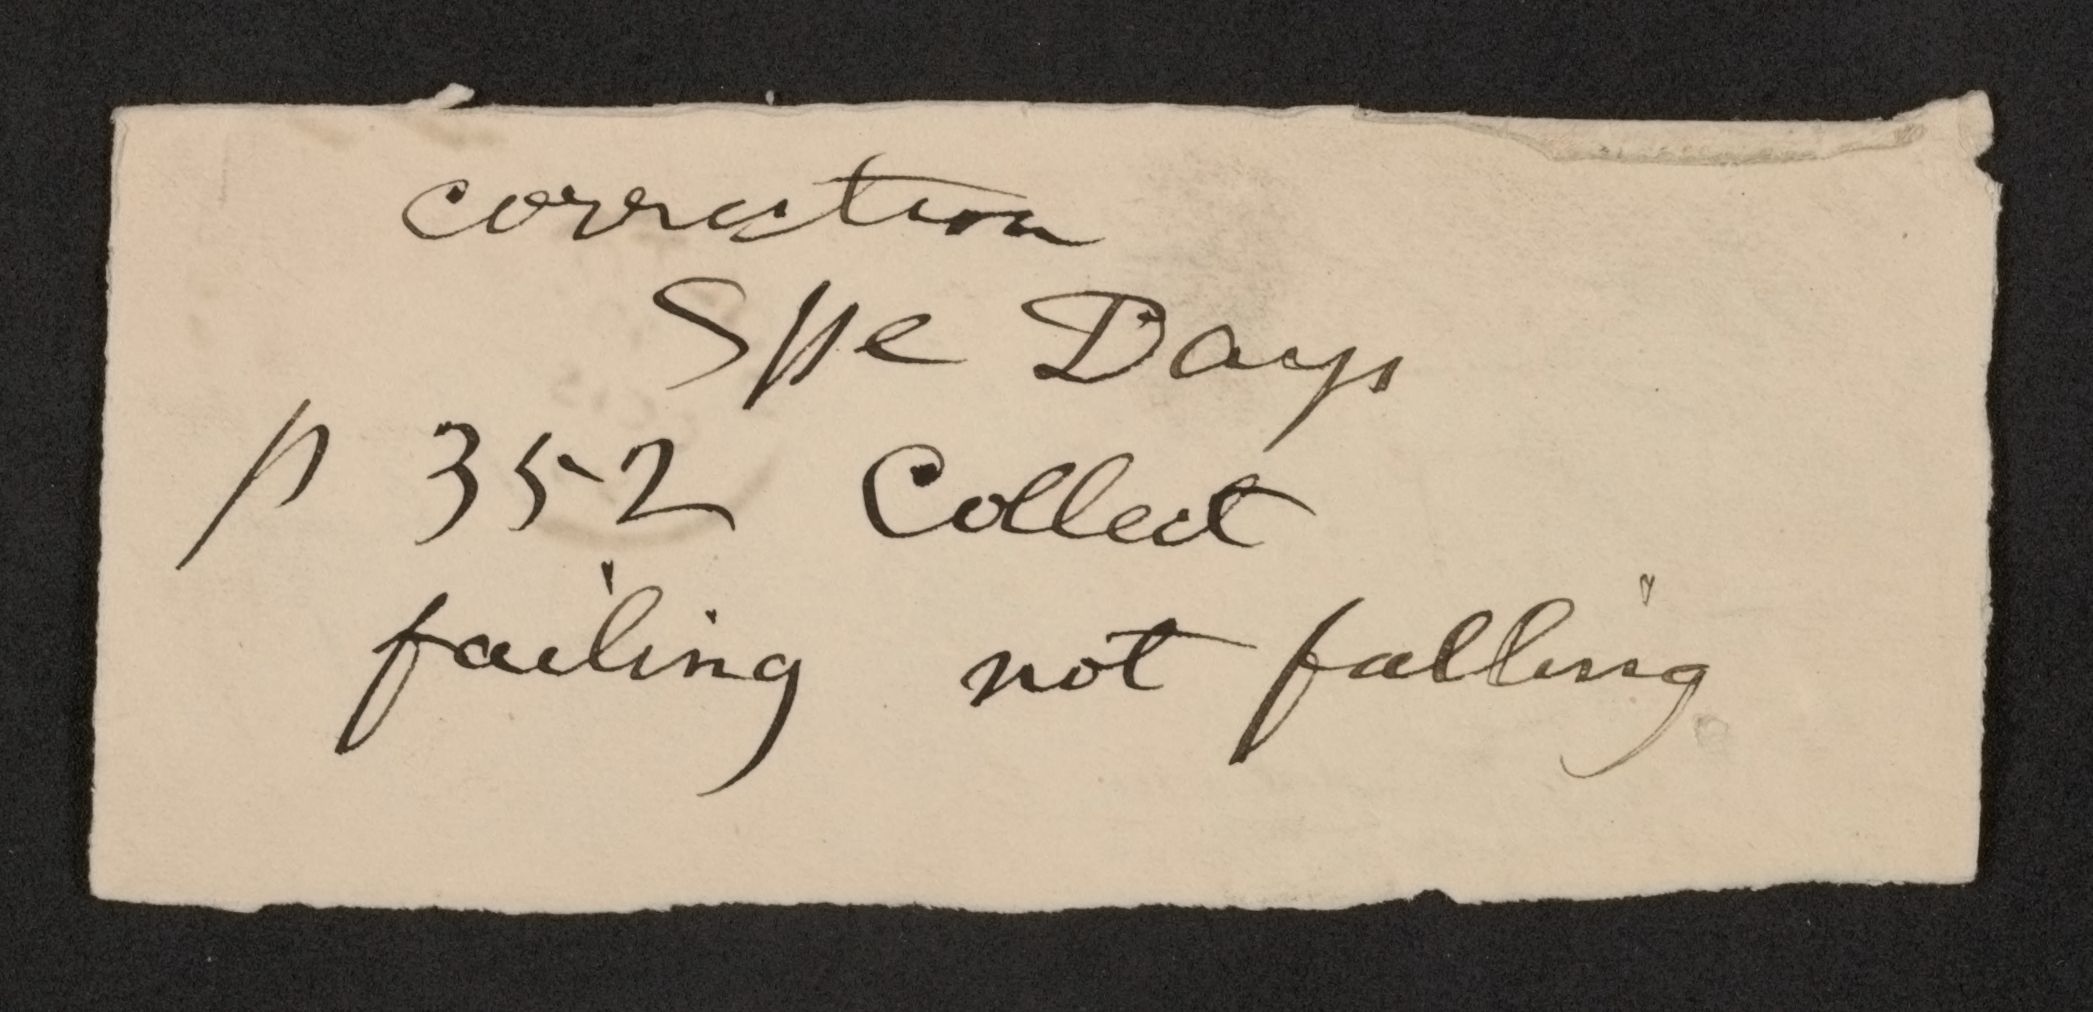 correction
Spe Days
p 352 Collect
failing not falling